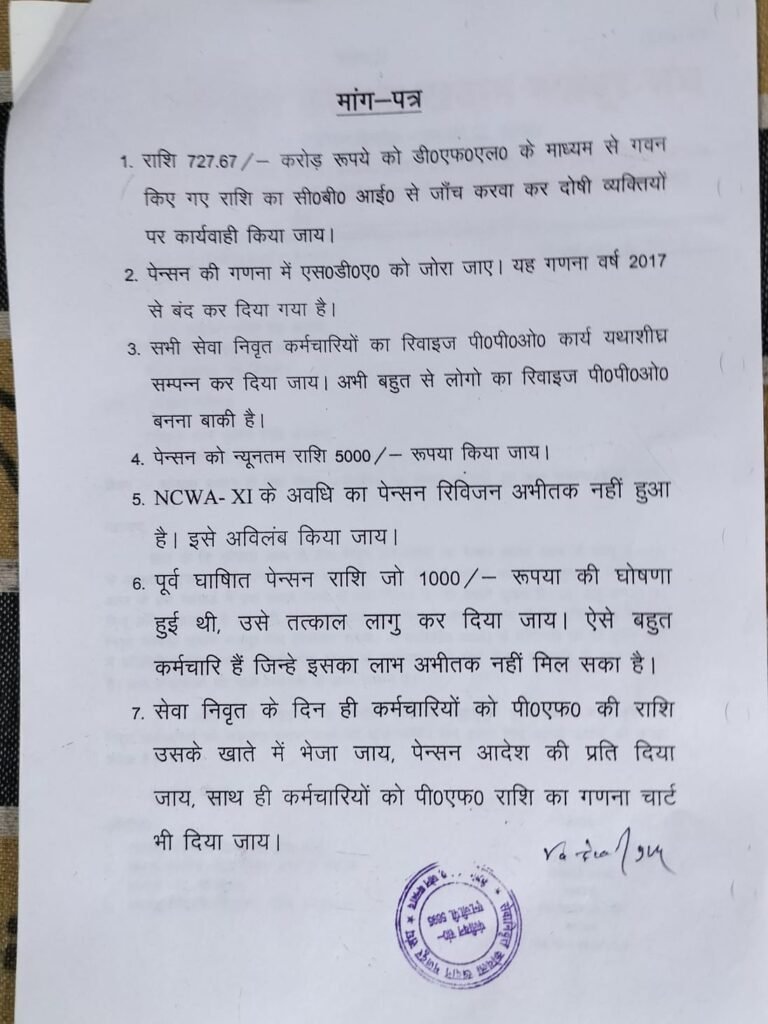 मांग–पत्र
1. राशि 727.67/– करोड़ रूपये को डी0एफ0एल0 के माध्यम से गवन
किए गए राशि का सी0बी0 आई0 से जाँच करवा कर दोषी व्यक्तियों
पर कार्यवाही किया जाय।
2. पेन्सन की गणना में एस0डी0ए0 को जोरा जाए। यह गणना वर्ष 2017
से बंद कर दिया गया है।
3. सभी सेवा निवृत कर्मचारियों का रिवाइज पी0पी0ओ0 कार्य यथाशीघ्र
सम्पन्न कर दिया जाय। अभी बहुत से लोगो का रिवाइज पी0पी0ओ0
बनना बाकी है।
4. पेन्सन को न्यूनतम राशि 5000/– रूपया किया जाय।
5. NCWA- XI के अवधि का पेन्सन रिविजन अभीतक नहीं हुआ
है। इसे अविलंब किया जाय।
6. पूर्व घाषिात पेन्सन राशि जो 1000/– रूपया की घोषणा
हुई थी, उसे तत्काल लागु कर दिया जाय। ऐसे बहुत
कर्मचारि हैं जिन्हे इसका लाभ अभीतक नहीं मिल सका है।
7. सेवा निवृत के दिन ही कर्मचारियों को पी0एफ0 की राशि
उसके खाते में भेजा जाय, पेन्सन आदेश की प्रति दिया
जाय, साथ ही कर्मचारियों को पी0एफ0 राशि का गणना चार्ट
भी दिया जाय।
सेवानिवृत्त कोयला खदान मजदूर संघ